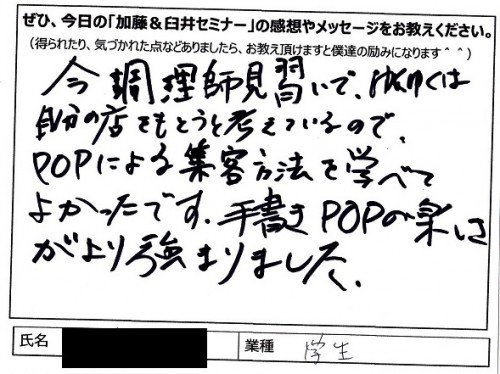 ぜひ、今日の「加藤＆臼井セミナー」の感想やメッセージをお教えください。
（得られたり、気づかれた点などありましたら、お教え頂けますと僕達の励みになります＾＾）
今調理師見習いで、ゆくゆくは
自分の店をもとうと考えているので、
POPによる集客方法を学べて
よかったです。手書きPOPの楽しさ
がより強まりました。
氏名
業種 学生